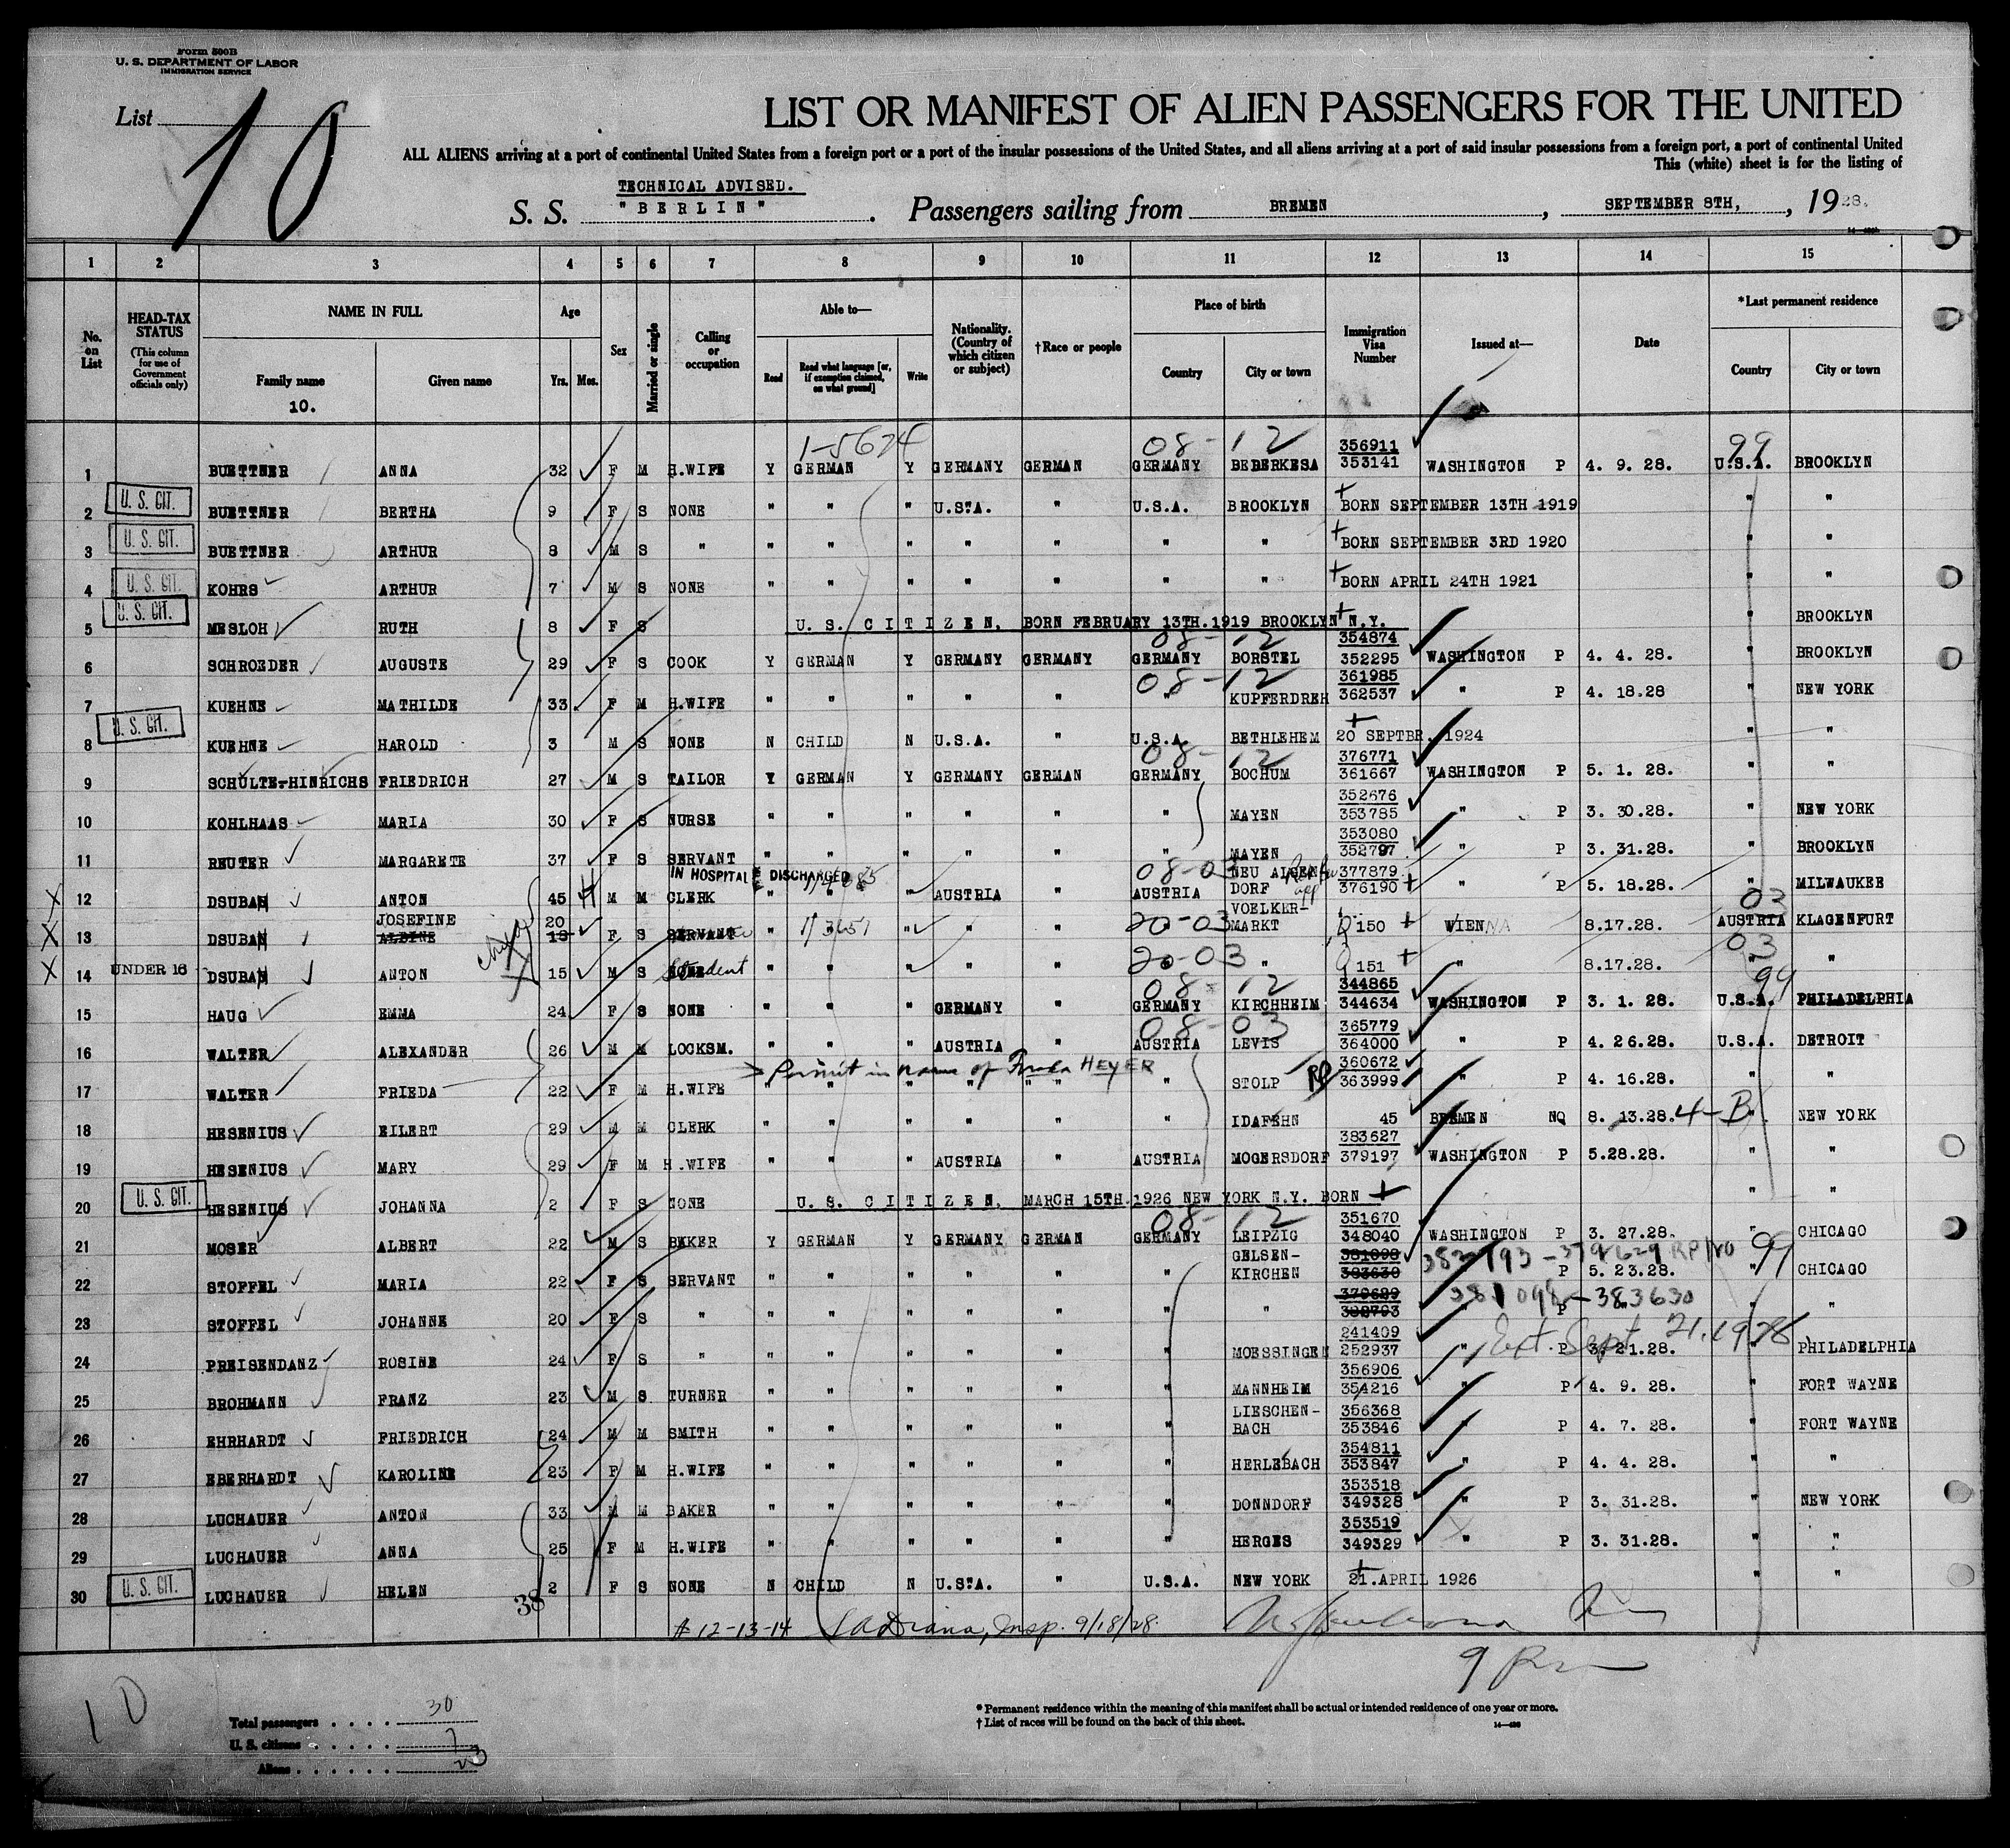 Form 500B
U. S. DEPARTMENT OF LABOR
IMMIGRATION SERVICE
List 10
LIST OR MANIFEST OF ALIEN PASSENGERS FOR THE UNITED
ALL ALIENS arriving at a port of continental United States from a foreign port or a port of the insular possessions of the United States, and all aliens arriving at a port of said insular possessions from a foreign port, a port of continental United
This (white) sheet is for the listing of
TECHNICAL ADVISED.
S. S. "BERLIN" . Passengers sailing from BREMEN , SEPTEMBER 8TH, , 1928.
1 2 3 4 5 6 7 8 9 10 11 12 13 14 15
No. on List
HEAD-TAX STATUS (This column for use of Government officials only)
NAME IN FULL Family name Given name
10.
Age Yrs. Mos.
Sex
Married or single
Calling or occupation
Able to— Read Read what language [or, if exemption claimed, on what ground] Write
Nationality. (Country of which citizen or subject)
†Race or people
Place of birth Country City or town
Immigration Visa Number
Issued at—
Date
*Last permanent residence Country City or town
1-5674 08-12 356911 99
1 BUETTNER ANNA 32 F M H.WIFE Y GERMAN Y GERMANY GERMAN GERMANY BEBERKESA 353141 WASHINGTON P 4. 9. 28. U.S.A. BROOKLYN
2 U. S. CIT. BUETTNER BERTHA 9 F S NONE " " " U.S.A. " U.S.A. BROOKLYN BORN SEPTEMBER 13TH 1919 " "
3 U. S. CIT. BUETTNER ARTHUR 8 M S " " " " " " " " BORN SEPTEMBER 3RD 1920 " "
4 U. S. CIT. KOHRS ARTHUR 7 M S NONE " " " " " " " BORN APRIL 24TH 1921 " "
5 U. S. CIT. MESLOH RUTH 8 F S U. S. CITIZEN, BORN FEBRUARY 13TH.1919 BROOKLYN N.Y. " BROOKLYN
08-12 354874
6 SCHROEDER AUGUSTE 29 F S COOK Y GERMAN Y GERMANY GERMANY GERMANY BORSTEL 352295 WASHINGTON P 4. 4. 28. " BROOKLYN
08-12 361985
7 KUEHNE MATHILDE 33 F M H.WIFE " " " " " " KUPFERDREH 362537 " P 4. 18.28 " NEW YORK
8 U. S. CIT. KUEHNE HAROLD 3 M S NONE N CHILD N U.S.A. " U.S.A. BETHLEHEM 20 SEPTBR. 1924 " "
08-12 376771
9 SCHULTE-HINRICHS FRIEDRICH 27 M S TAILOR Y GERMAN Y GERMANY GERMAN GERMANY BOCHUM 361667 WASHINGTON P 5. 1. 28. " "
352676
10 KOHLHAAS MARIA 30 F S NURSE " " " " " " MAYEN 353785 " P 3. 30.28. " NEW YORK
353080
11 REUTER MARGARETE 37 F S SERVANT " " " " " " MAYEN 352797 " P 3. 31.28. " BROOKLYN
IN HOSPITAL DISCHARGED 08-03 NEU AIGEN- 377879
X 12 DSUBAN ANTON 45 M M CLERK " " " AUSTRIA " AUSTRIA DORF 376190 " P 5. 18.28. " MILWAUKEE
JOSEFINE 20 1/3651 20-03 VOELKER- 03
X 13 DSUBAN ALBINE 18 F S SERVANT " " " " " " MARKT 150 WIENNA 8.17.28. AUSTRIA KLAGENFURT
20-03 03
X 14 UNDER 16 DSUBAN ANTON 15 M S NONE Student " " " " " " " 151 " 8.17.28. " "
08-12 344865 99
15 HAUG EMMA 24 F S NONE " " " GERMANY " GERMANY KIRCHHEIM 344634 WASHINGTON P 3. 1. 28. U.S.A. PHILADELPHIA
08-03 365779
16 WALTER ALEXANDER 26 M M LOCKSM. " " " AUSTRIA " AUSTRIA LEVIS 364000 " P 4. 26.28. U.S.A. DETROIT
Permit in name of Frieda HEYER 360672
17 WALTER FRIEDA 22 F M H.WIFE " " " " " " STOLP 363999 " P 4. 16.28. " "
18 HESENIUS EILERT 29 M M CLERK " " " " " " IDAFEHN 45 BREMEN NQ 8. 13.28. 4-B " NEW YORK
383627
19 HESENIUS MARY 29 F M H.WIFE " " " AUSTRIA " AUSTRIA MOGERSDORF 379197 WASHINGTON P 5.28.28. " "
20 U. S. CIT. HESENIUS JOHANNA 2 F S NONE U. S. CITIZEN, MARCH 15TH.1926 NEW YORK N.Y. BORN " "
08-12 351670
21 MOSER ALBERT 22 M S BAKER Y GERMAN Y GERMANY GERMAN GERMANY LEIPZIG 348040 WASHINGTON P 3. 27.28. " CHICAGO
GELSEN- 381098 382793-379629 RP/VO 99
22 STOFFEL MARIA 22 F S SERVANT " " " " " " KIRCHEN 383630 P 5. 23.28. " CHICAGO
379629 381098-383630
23 STOFFEL JOHANNE 20 F S " " " " " " " " 382793 " P " " "
241409 Ext. Sept 21.1928
24 PREISENDANZ ROSINE 24 F S " " " " " " " MOESSINGEN 252937 " P 3.21.28. " PHILADELPHIA
356906
25 BROHMANN FRANZ 23 M S TURNER " " " " " " MANNHEIM 354216 " P 4. 9. 28. " FORT WAYNE
LIESCHEN- 356368
26 EHRHARDT FRIEDRICH 24 M M SMITH " " " " " " BACH 353846 " P 4. 7. 28. " FORT WAYNE
354811
27 EBERHARDT KAROLINE 23 F M H.WIFE " " " " " " HERLEBACH 353847 " P 4. 4. 28. " "
353518
28 LUCHAUER ANTON 33 M M BAKER " " " " " " DONNDORF 349328 " P 3. 31.28. " NEW YORK
353519
29 LUCHAUER ANNA 25 F M H.WIFE " " " " " " HERGES 349329 " P 3. 31.28. " "
30 U. S. CIT. LUCHAUER HELEN 2 F S NONE N CHILD N U.S.A. " U.S.A. NEW YORK 21.APRIL 1926 " "
38
# 12-13-14 Insp. 9/18/28.
10
Total passengers . . . . 30
U. S. citizens . . . . . 7
Aliens . . . . . . 23
* Permanent residence within the meaning of this manifest shall be actual or intended residence of one year or more.
† List of races will be found on the back of this sheet.